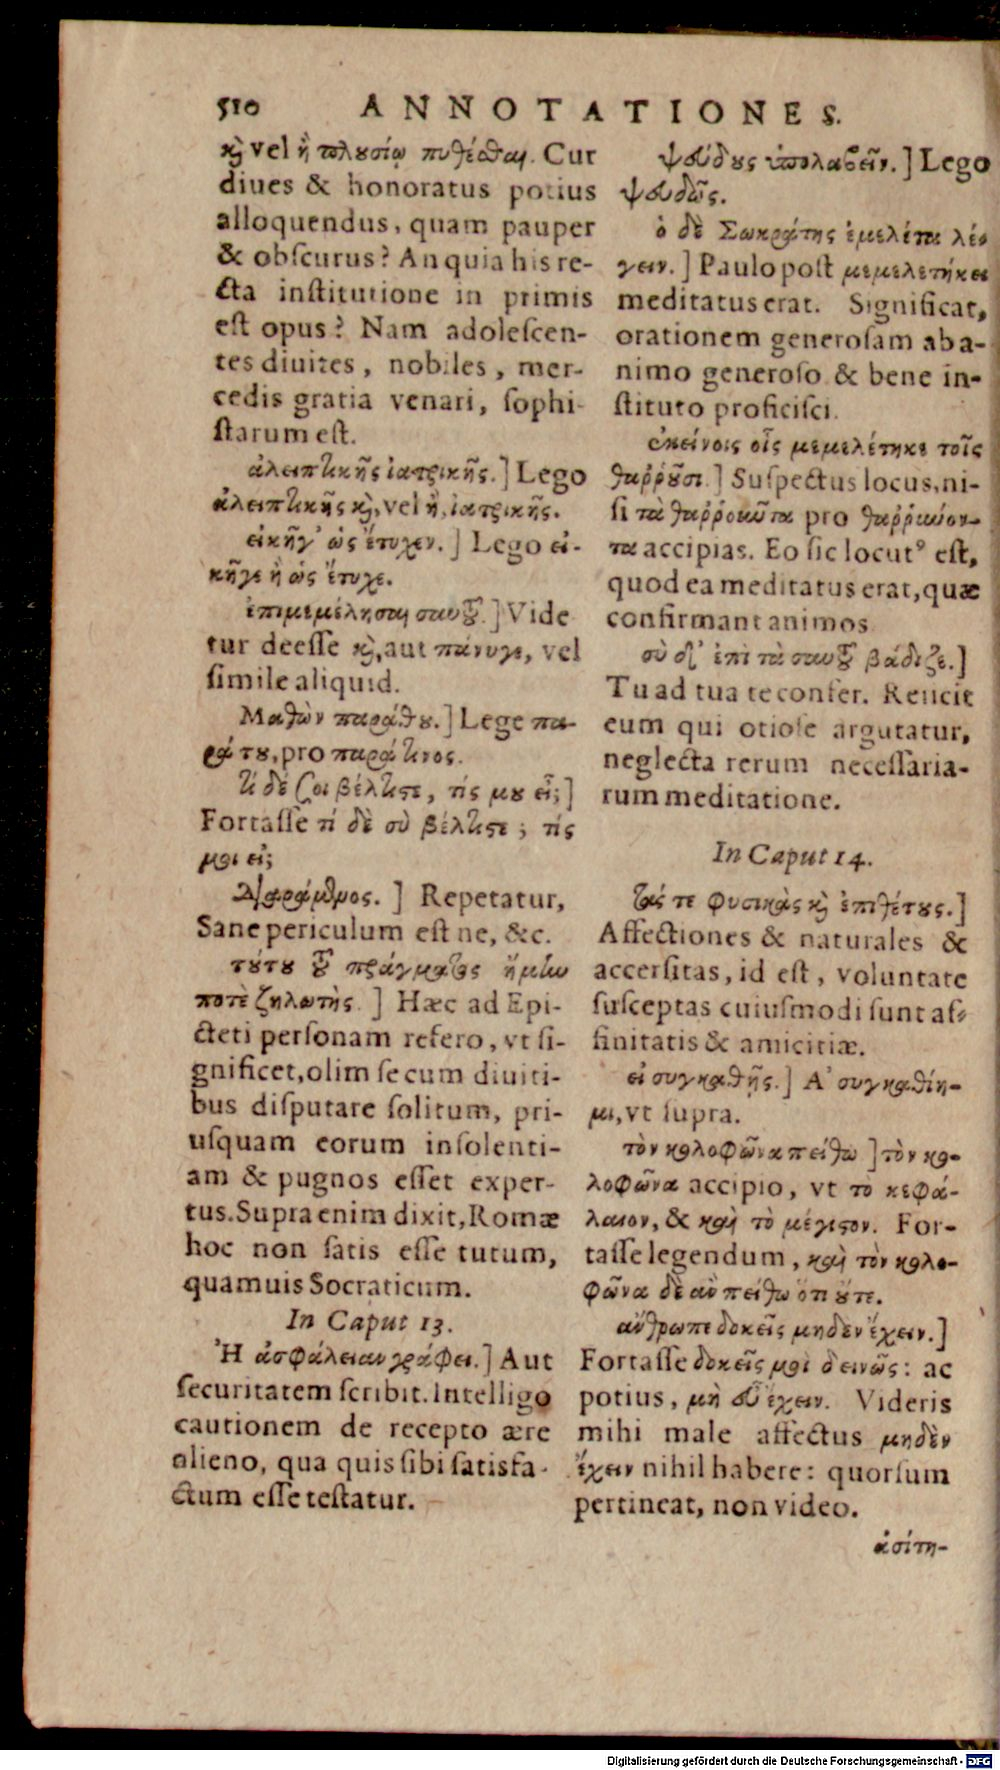 510 ANNOTATIONES.
καὶ vel ἢ πλουσίῳ πυθέσθαι. Cur
diues & honoratus potius
alloquendus, quam pauper
& obſcurus? An quia his re-
cta institutione in primis
eſt opus? Nam adoleſcen-
tes diuites, nobiles, mer-
cedis gratia venari, ſophi-
ſtarum eſt.
ἀλειπτικῆς ἰατρικῆς.] Lego
ἀλειπτικῆς καὶ, vel ἢ, ἰατρικῆς.
εἰκῆγ' ὡς ἔτυχεν.] Lego εἰ-
κῆγε ἢ ὡς ἔτυχε.
ἐπιμεμέλησαι σαυτοῦ.] Vide
tur deeſſe καὶ, aut πάνυγε, vel
ſimile aliquid.
Μαθὼν παράθου.] Lege πα-
ρά του, pro παρά τινος.
τί δέ σοι βέλτιστε, τίς μου εἶ;]
Fortaſſe τί δὲ σὺ βέλτιστε; τίς
μοι εἶ;
Διαράμενος.] Repetatur,
Sane periculum eſt ne, &c.
τούτου τοῦ πράγματος ἤμην
ποτὲ ζηλωτὴς.] Hæc ad Epi-
cteti perſonam refero, vt ſi-
gnificet, olim ſecum diuiti-
bus diſputare ſolitum, pri-
uſquam eorum inſolenti-
am & pugnos eſſet exper-
tus. Supra enim dixit, Romæ
hoc non ſatis eſſe tutum,
quamuis Socraticum.
In Caput 13.
Ἢ ἀσφάλειαν γράφει.] Aut
ſecuritatem ſcribit. Intelligo
cautionem de recepto ære
alieno, qua quis ſibi ſatisfa-
ctum eſſe teſtatur.
ψεύδους ὑπολαβεῖν.] Lego
ψευδῶς.
ὁ δὲ Σωκράτης ἐμελέτα λέ-
γειν.] Paulo poſt μεμελετήκει
meditatus erat. Significat,
orationem generoſam ab a-
nimo generoſo & bene in-
ſtituto proficiſci.
ἐκείνοις οἷς μεμελέτηκε τοῖς
θαῤῥοῦσι.] Suſpectus locus, ni-
ſi τὰ θαῤῥοποιοῦντα pro θαῤῥύνον-
τα accipias. Eo ſic locutꝰ eſt,
quod ea meditatus erat, quæ
confirmant animos
σὺ δ' ἐπὶ τὰ σαυτοῦ βάδιζε.]
Tu ad tua te confer. Reiicit
eum qui otioſe argutatur,
neglecta rerum neceſſaria-
rum meditatione.
In Caput 14.
τάς τε φυσικὰς καὶ ἐπιθέτους.]
Affectiones & naturales &
accerſitas, id eſt, voluntate
ſuſceptas cuiuſmodi ſunt af-
finitatis & amicitiæ.
εἰ συγκαθῇς.] A' συγκαθίη-
μι, vt ſupra.
τὸν κολοφῶνα πείθω] τὸν κο-
λοφῶνα accipio, vt τὸ κεφά-
λαιον, & καὶ τὸ μέγιστον. For-
taſſe legendum, καὶ τὸν κολο-
φῶνα δὲ ἂν πείθω ὅτι οὔτε.
ἄνθρωπε δοκεῖς μηδὲν ἔχειν.]
Fortaſſe δοκεῖς μοι δεινῶς: ac
potius, μὴ εὖ ἔχειν. Videris
mihi male affectus μηδὲν
ἔχειν nihil habere: quorſum
pertineat, non video.
ἀσίτη-
Digitalisierung gefördert durch die Deutsche Forschungsgemeinschaft - DFG